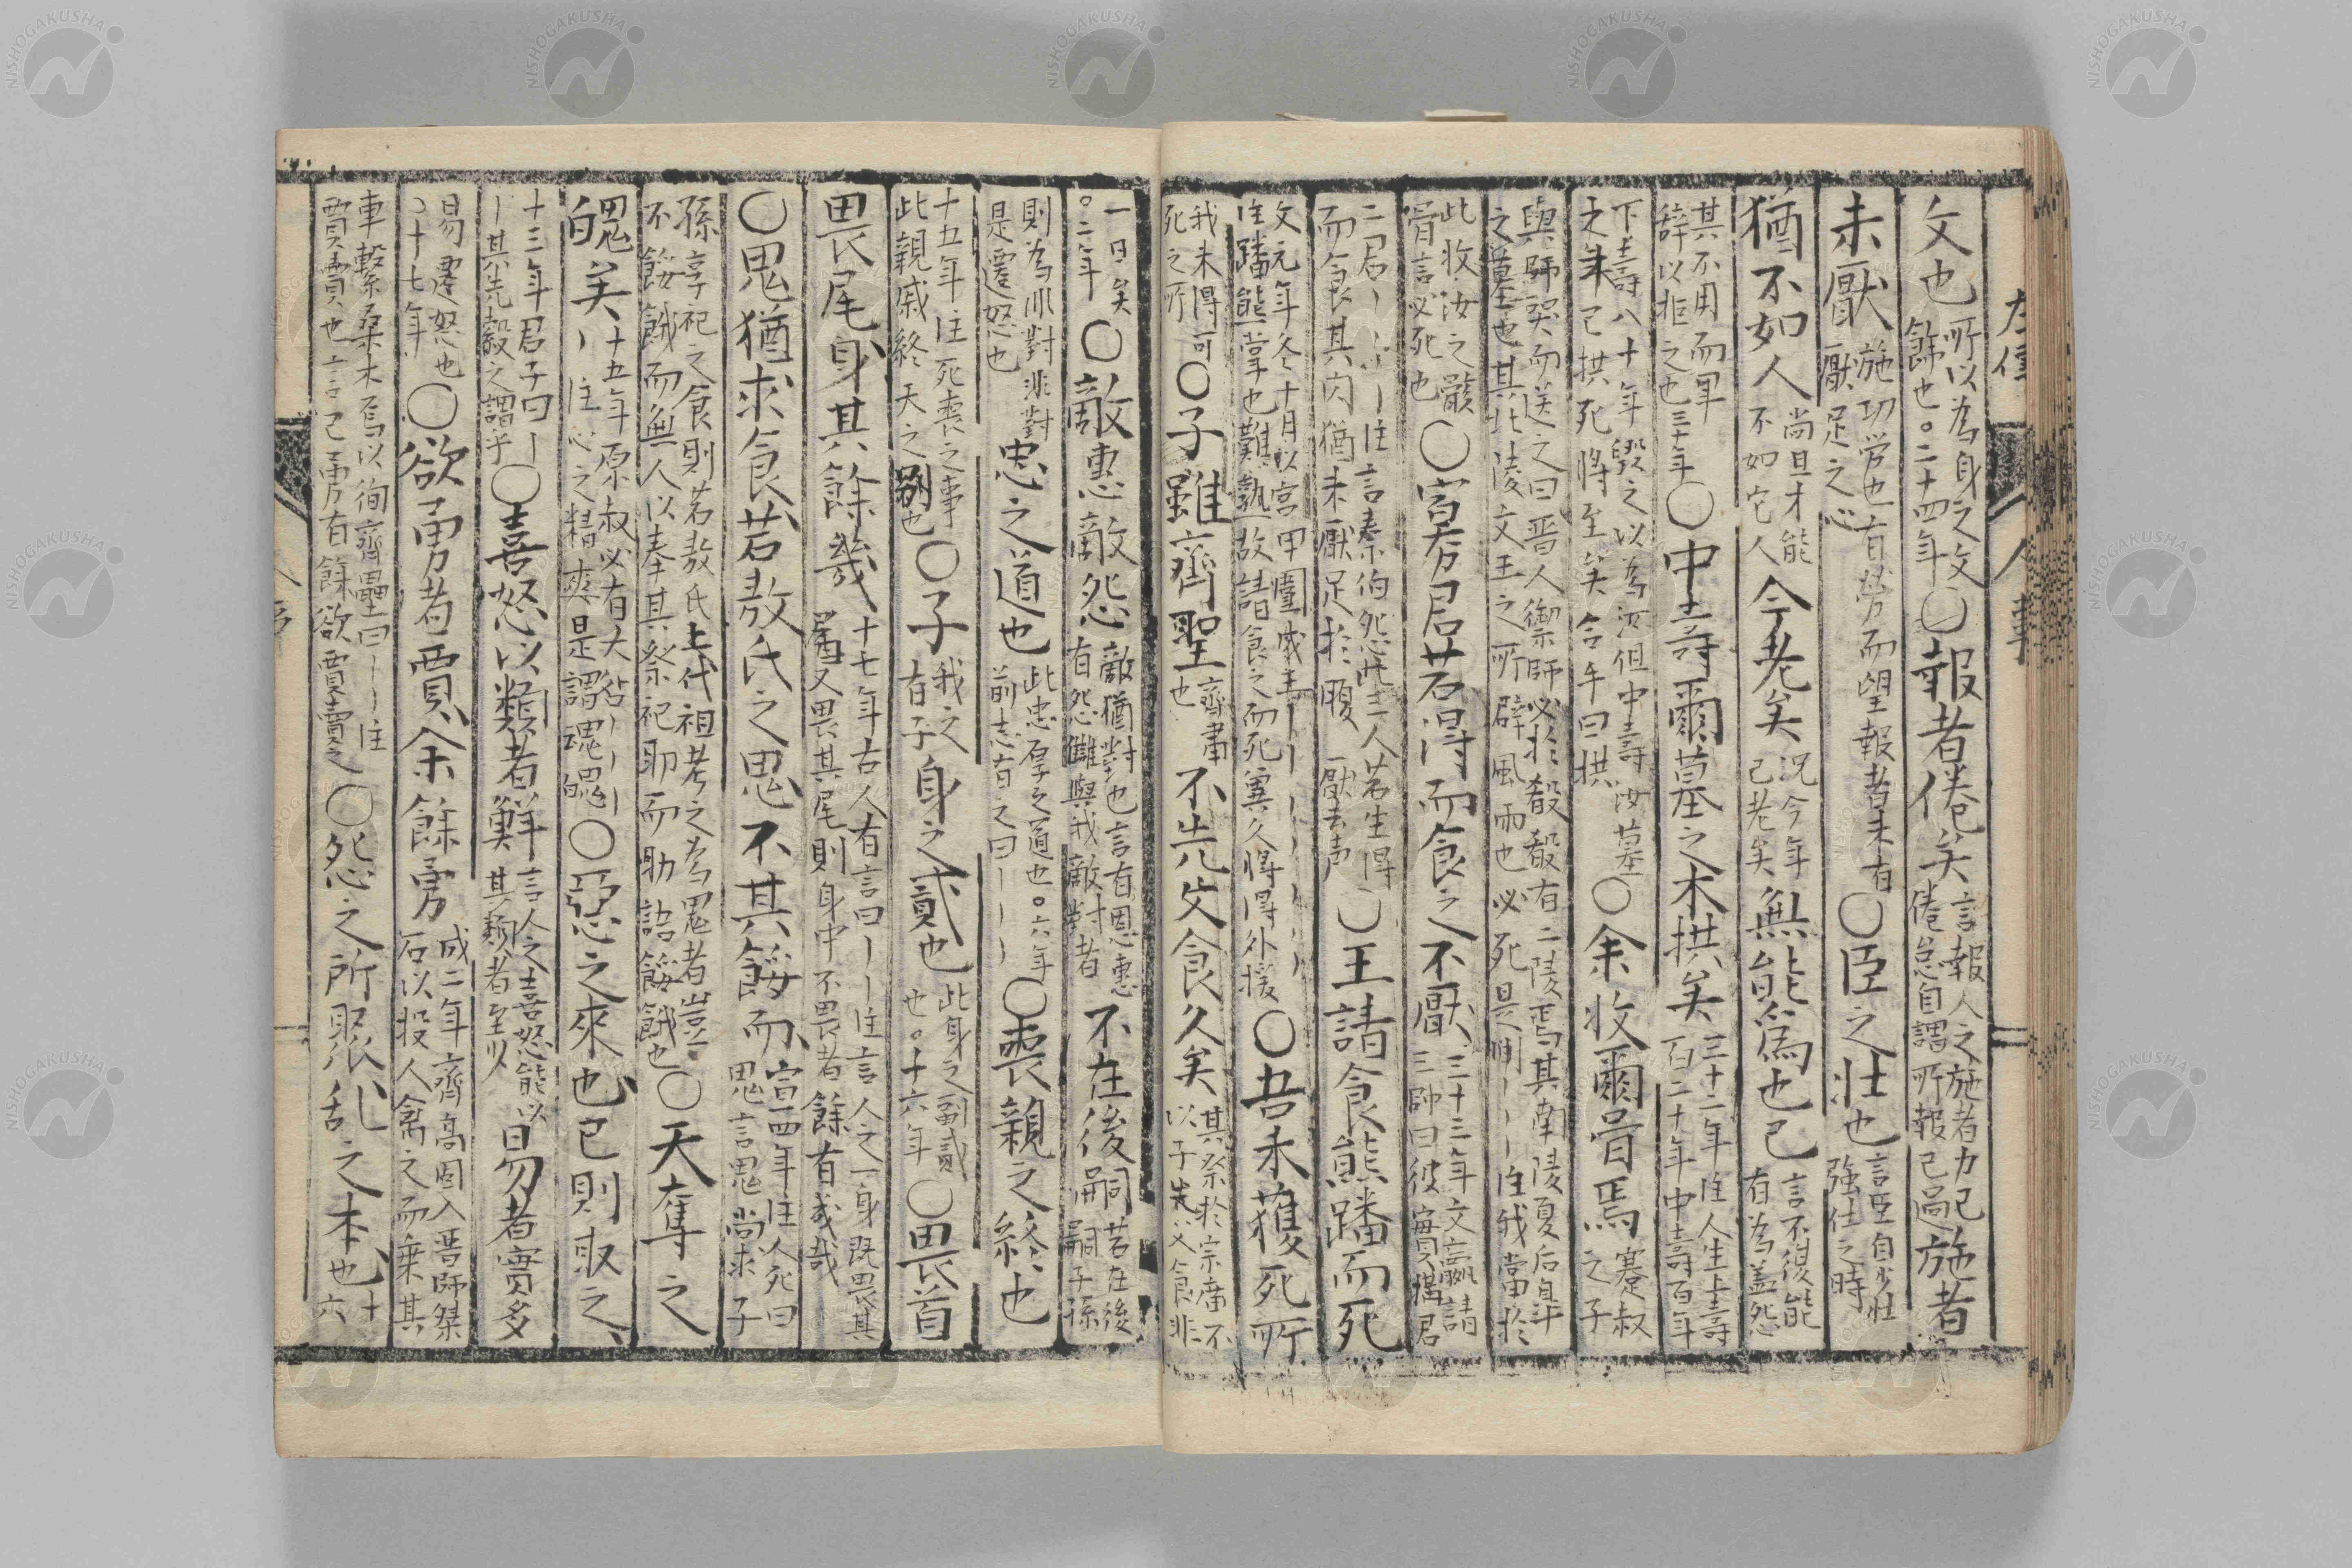 左傳 人事
文也 所以為身之文 餙也○二十四年 ○報者倦矣 言報人之施者力已 倦怠自謂所報已過 施者
未厭 施功労也有勞而望報者未有 厭足之心 ○臣之壮也 言臣自少壮 強仕之時
猶不如人 尚且才能 不如它人 今老矣 況今年 已老矣 無能為也已 言不復能 有為盖怨
其不用而早 辞以拒之也三十年 ○中壽爾墓之木拱矣 三十二年住人生上壽 百二十年中壽百年
下壽八十年毀之以為汝但中壽汝墓 之木已拱死将至矣合手曰拱 ○余收爾骨焉 蹇叔 之子
與師哭而送之曰晋人禦師必於殽殽有二陵焉其南陵夏后皐 之墓也其北陵文王之所辟風雨也必死是間丨丨丨住我當於
此收汝之骸 骨言必死也 ○寡君若得而食之不厭 三十三年文嬴請 三帥曰彼實搆君
二君丨丨丨住言秦伯怨此三人若生得 而食其肉猶未厭足於腹 厭去声 ○王請食熊蹯而死
文元年冬十月以宮甲圍成王丨丨丨丨丨丨 住蹯熊掌也難熟故請食之而死冀久将得外援 ○吾未獲死所
我未得可 死之所 ○子雖齊聖 齊肅 也 不先父食久矣 其祭於宗庿不 以子先父食非
一日矣 ○二年 ○敵惠敵怨 敵猶對也言有恩惠 有怨讎與我敵對者 不在後嗣 若在後 嗣子孫
則為非對非對 是遷怒也 忠之道也 此忠厚之道也○六年 前志有之曰丨丨丨 ○喪親之終也
十五年住死喪之事 此親戚終天之别也 ○子 我之 有子 身之貳也 此身之副貳 也○十六年 ○畏首
畏尾身其餘幾 十七年古人有言曰丨丨住言人之一身既畏其 首又畏其尾則身中不畏者餘有幾哉
○鬼猶求食若敖氏之鬼不其餒而 宣四年住人死曰 鬼言鬼尚求子
孫享祀之食則若敖氏上代祖考之為鬼者豈 不餒餓而無人以奉其祭祀耶而助語餒餓也 ○天奪之
魄矣 十五年原叔必有大咎丨丨丨 丨住心之精爽是謂魂魄 ○惡之來也已則取之
十三年君子曰丨 丨其先縠之謂乎 ○喜怒以類者鮮矣 言人之喜怒能以 其類者至少 易者實多
易遷怒也 ○十七年 ○欲勇者賈余餘勇 成二年齊高固入晋師桀 石以投人禽之而乗其
車繫桑木焉以徇齊壘曰丨丨住 賈賣也言己勇有餘欲賈賣之 ○怨之所聚乱之本也 十 六